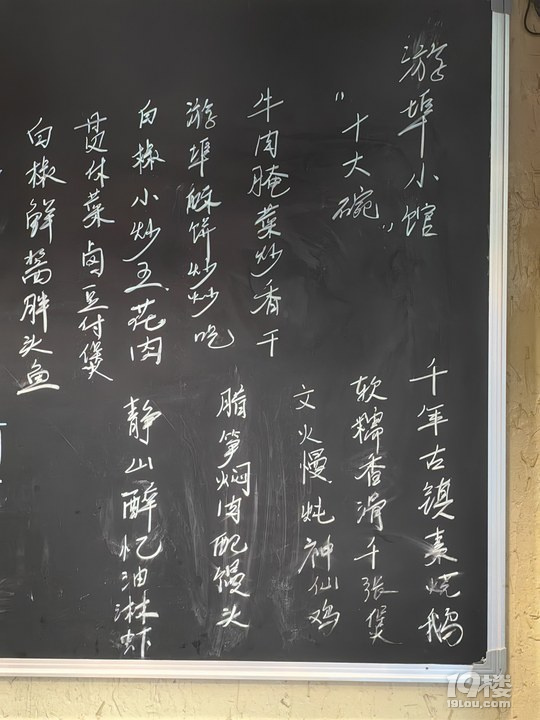 游埠小馆
“十大碗”
牛肉腌菜炒香干
游埠酥饼炒炒吃
白椒小炒五花肉
贯休菜卤豆付煲
白椒鲜胖头鱼
千年古镇素烧鹅
软糯香滑千张煲
文火慢炖神仙鸡
腊笋焖肉配馒头
静山醉忆油淋虾
19楼
19lou.com